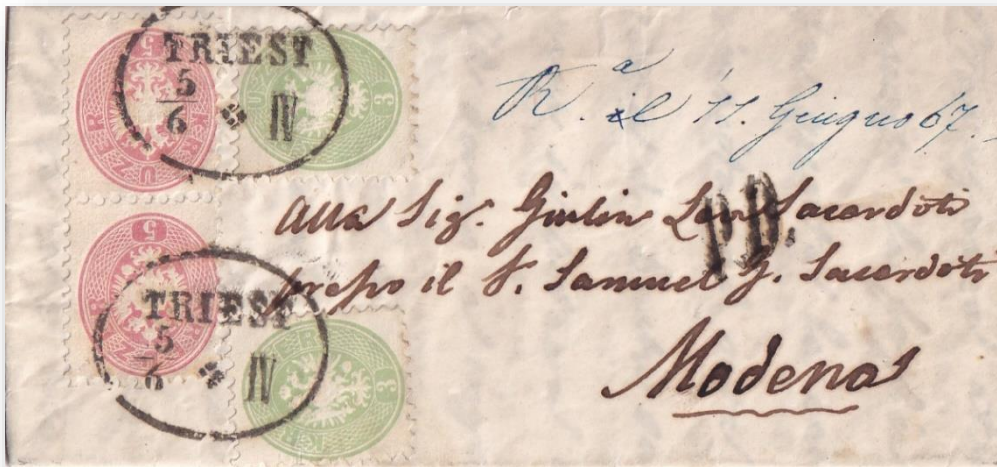 TRIEST
5
6
IV
5
3
Rª il 11. Giugno 67.
Alla Sig.ª Giulia Levi Sacerdoti
P.D.
presso il S. Samuel G. Sacerdoti
Modena
5
TRIEST
5
6
IV
3